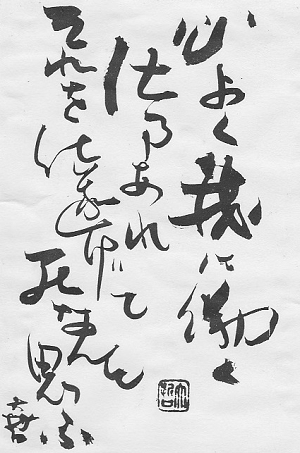 心よく我に働く
仕事あれ
それを仕遂げて
死なんと思ふ